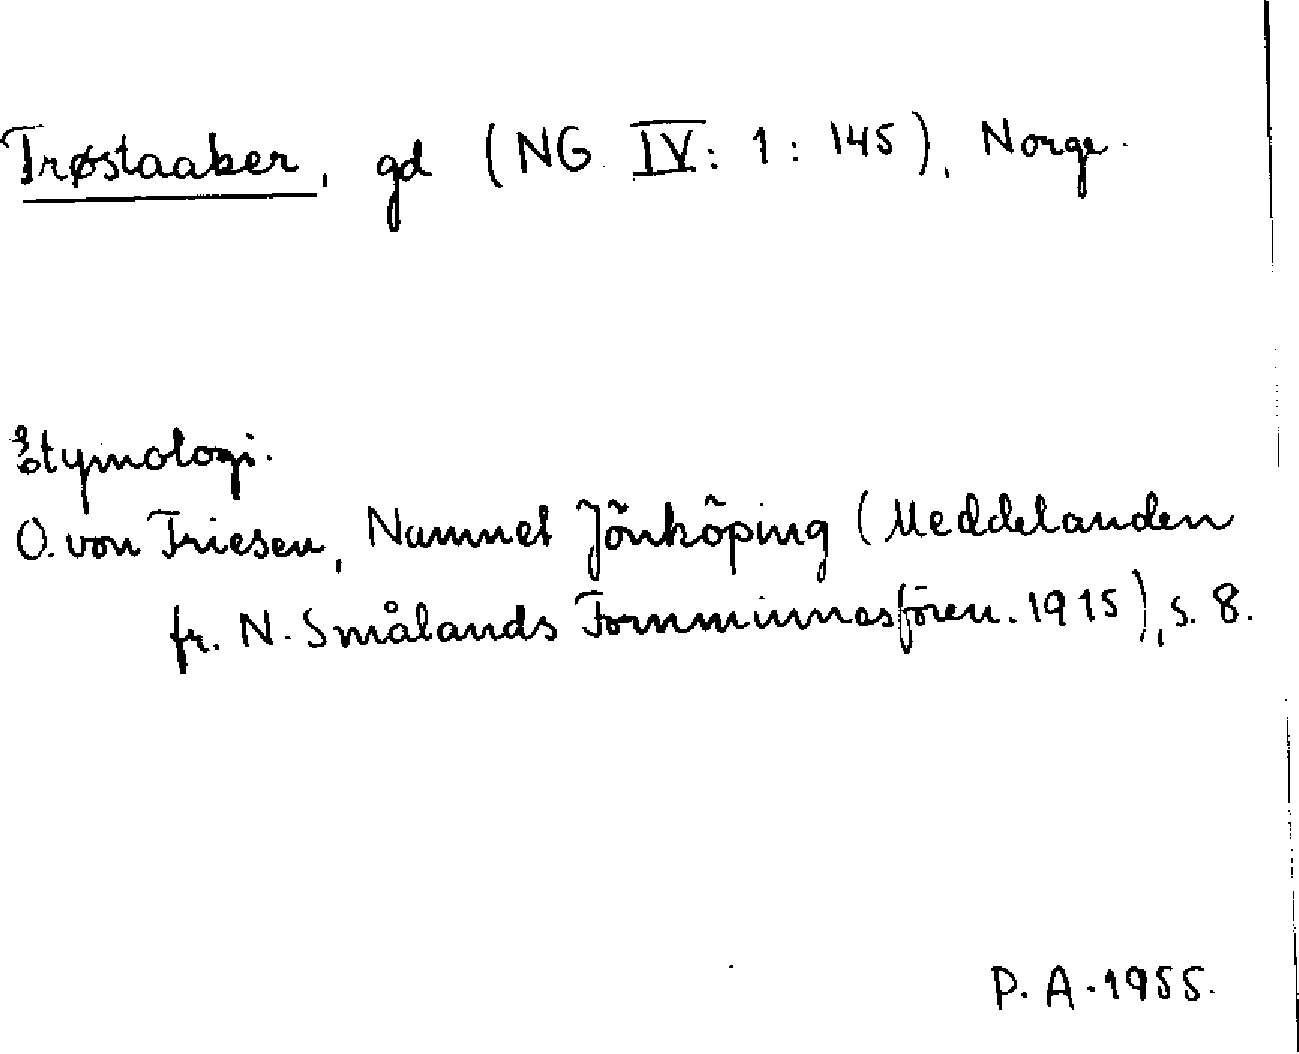 Trøstaaker, gd (NG IV: 1: 145), Norge.
Etymologi.
O. von Friesen, Namnet Jönköping (Meddelanden
fr. N. Smålands Fornminnesfören. 1915), s. 8.
P. A. 1955.